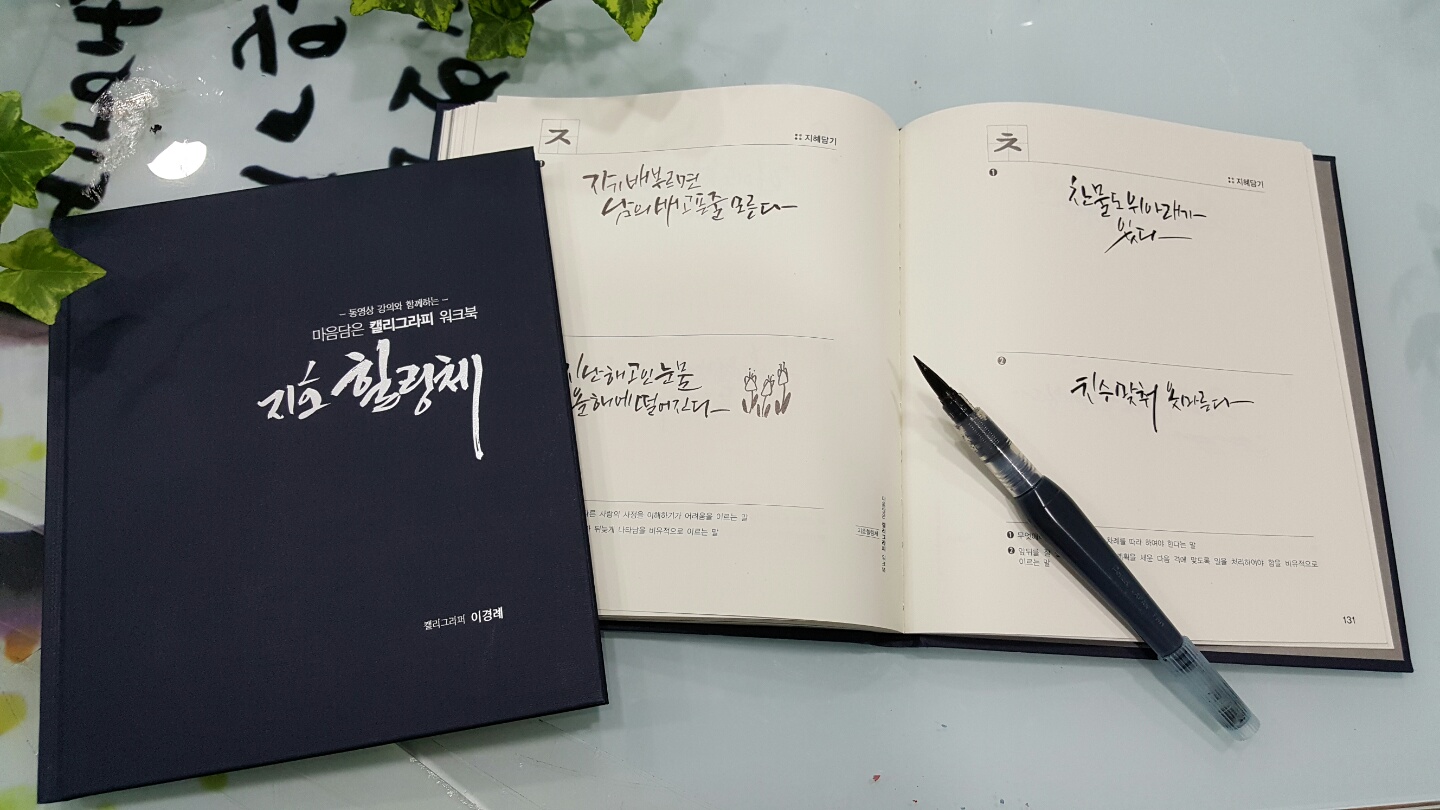 – 동영상 강의와 함께하는 –
마음담은 캘리그라피 워크북
지호 힐링체
캘리그라피 이경례
ㅈ
지혜담기
자기 배부르면
남의 배고픈줄 모른다
지난해 고인 눈물
올해에 떨어진다
사람의 사정을 이해하기가 어려움을 이르는 말
뒤늦게 나타남을 비유적으로 이르는 말
지호힐링체
마음담은 캘리그라피 워크북
ㅊ
지혜담기
❶
찬물도 위아래가
있다
❷
치수 맞춰 옷 마른다
❶ 차례를 따라 하여야 한다는 말
❷ 앞뒤를 세운 다음 격에 맞도록 일을 처리하여야 함을 비유적으로
이르는 말
131